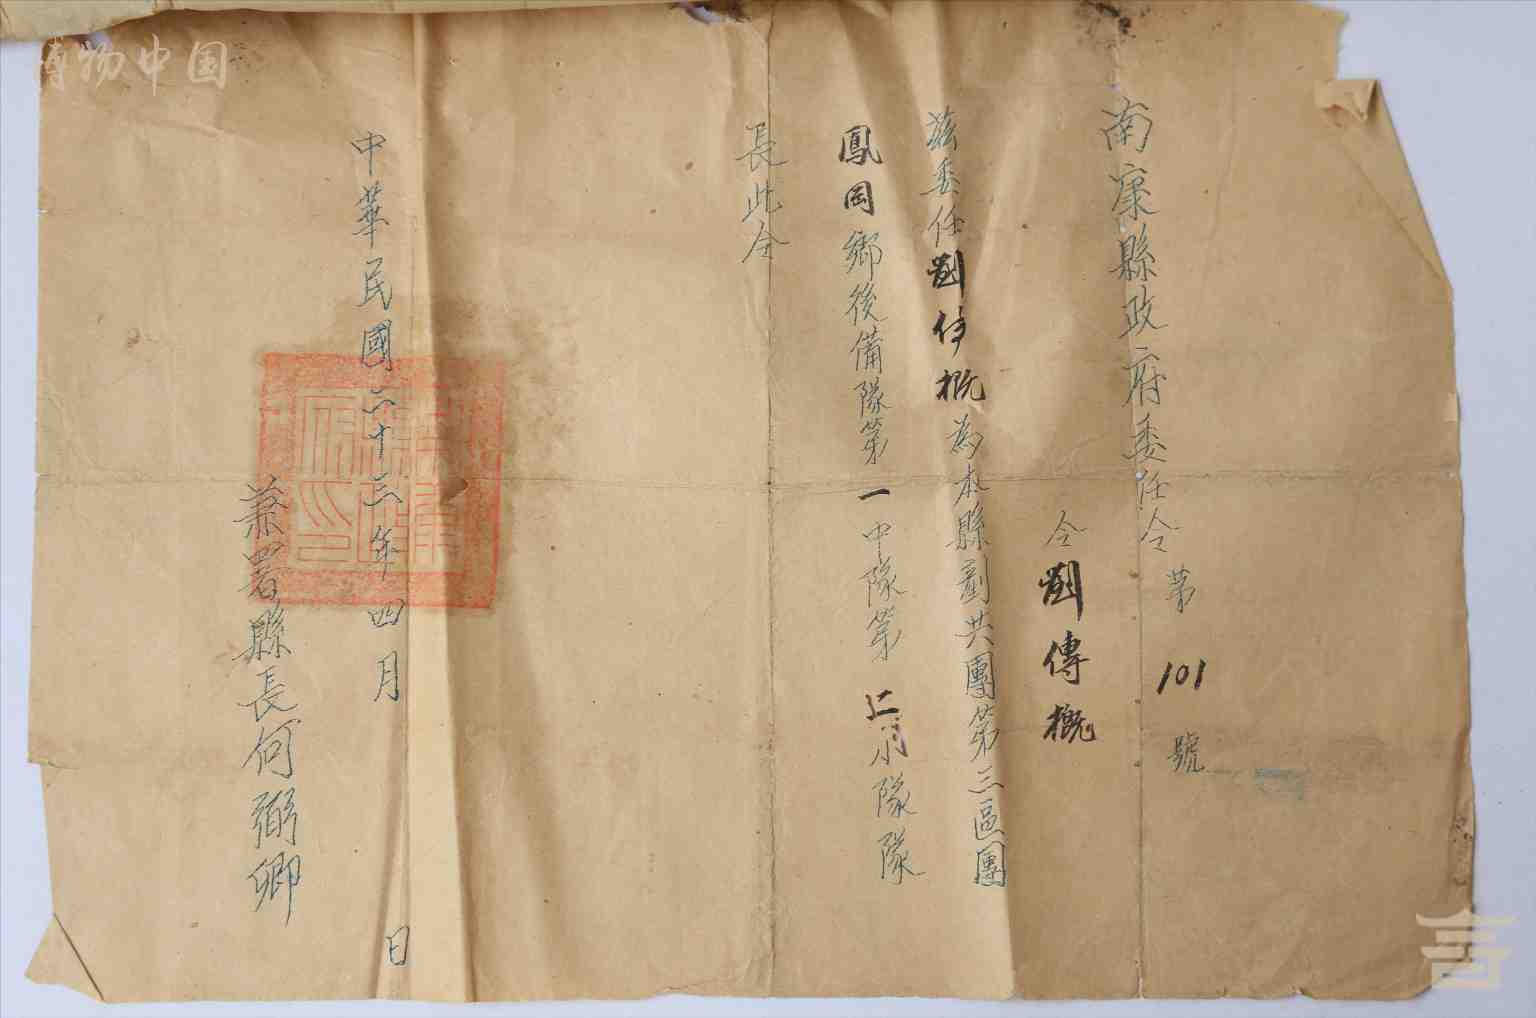 南康縣政府委任令第101號
令劉傳概
茲委任劉传概為本縣剷共團第三區團
鳳岡鄉後備隊第一中隊第二小隊隊
長此令
中華民國二十三年四月 日
兼署縣長何弼卿
博物中国